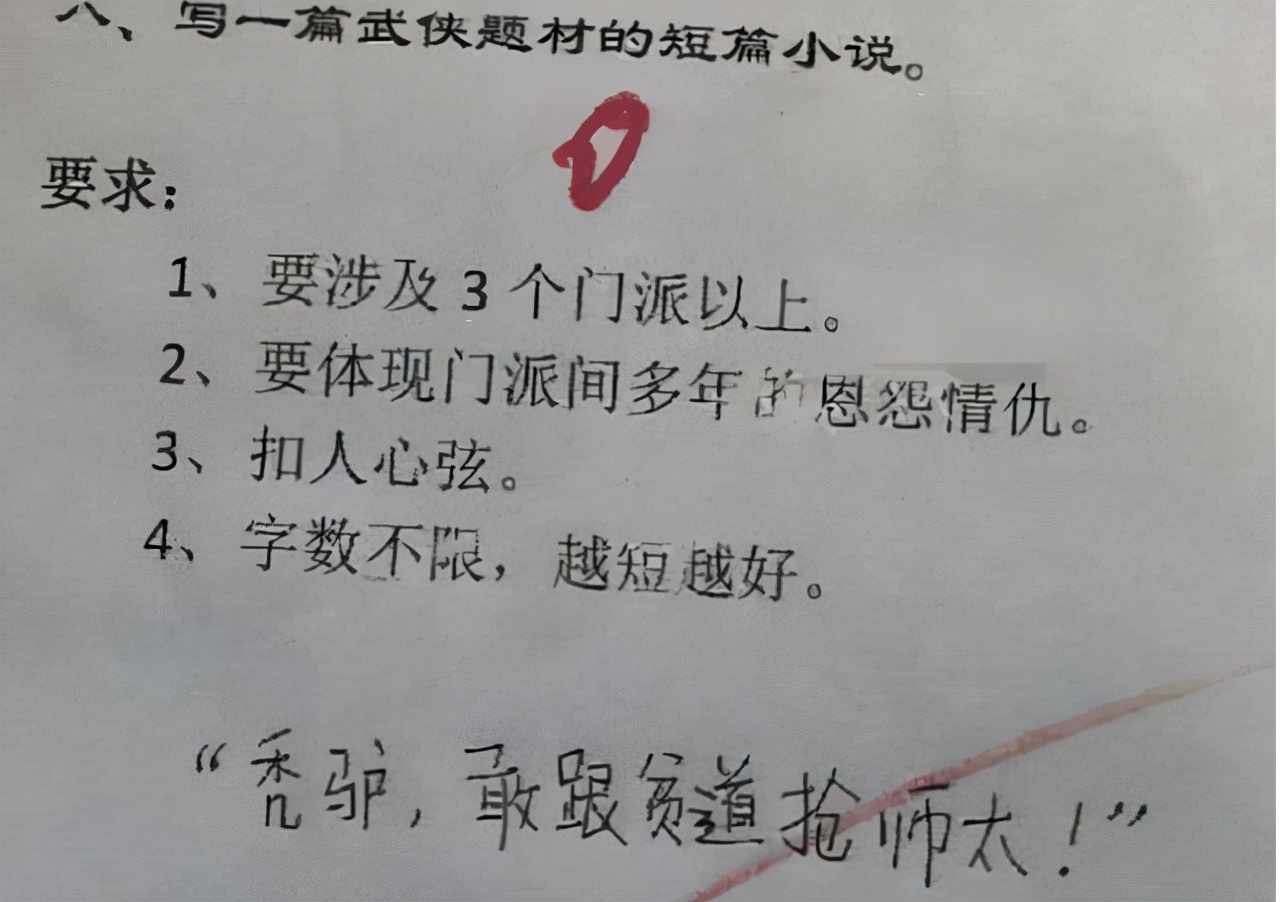 八、写一篇武侠题材的短篇小说。
0
要求：
1、要涉及 3 个门派以上。
2、要体现门派间多年的恩怨情仇。
3、扣人心弦。
4、字数不限，越短越好。
“秃驴，敢跟贫道抢师太！”